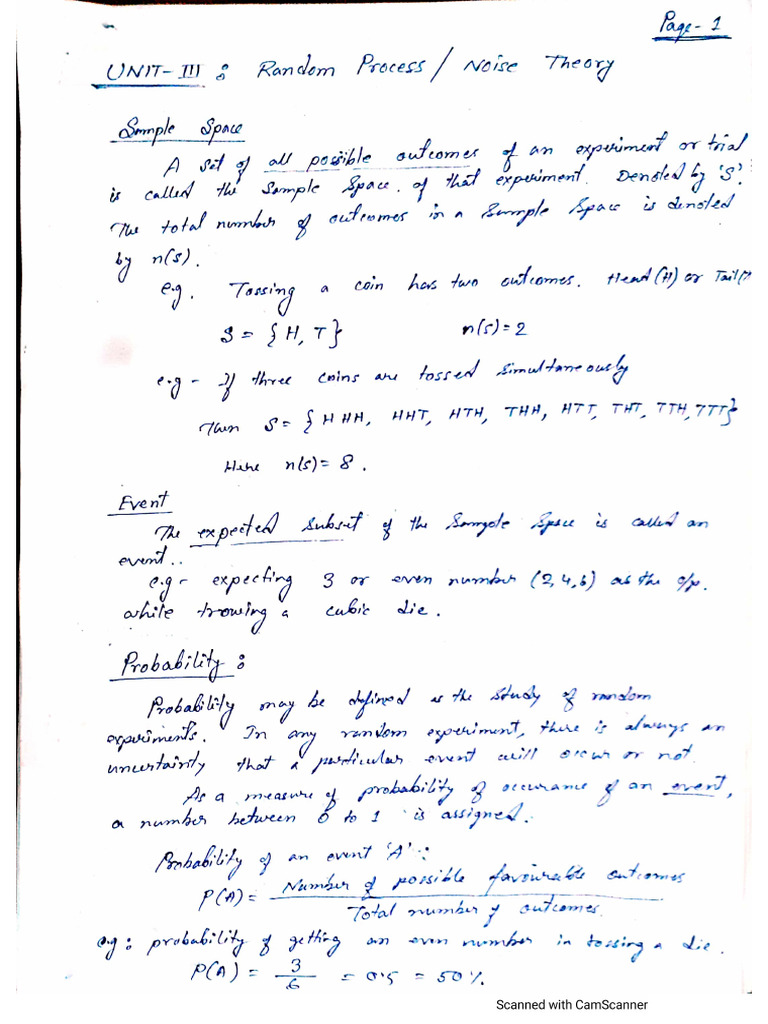 Page-1
UNIT-III : Random Process / Noise Theory
Sample Space
A set of all possible outcomes of an experiment or trial
is called the Sample Space. of that experiment. Denoted by 'S'.
The total number of outcomes in a Sample Space is denoted
by n(s).
e.g. Tossing a coin has two outcomes. Head (H) or Tail(T
S = {H, T} n(s) = 2
e.g - If three coins are tossed simultaneously
Then S = { HHH, HHT, HTH, THH, HTT, THT, TTH, TTT}
Here n(s) = 8.
Event
The expected subset of the Sample Space is called an
event..
e.g - expecting 3 or even number (2,4,6) as the o/p.
while trowing a cubic die.
Probability :
Probability may be defined as the study of random
experiments. In any random experiment, there is always an
uncertainity that a particular event will occur or not.
As a measure of probability of occurance of an event,
a number between 0 to 1 is assigned.
Probability of an event 'A' :
P(A) = Number of possible favourable outcomes
Total number of outcomes.
e.g : probability of getting an even number in tossing a die.
P(A) = 3/6 = 0.5 = 50%.
Scanned with CamScanner